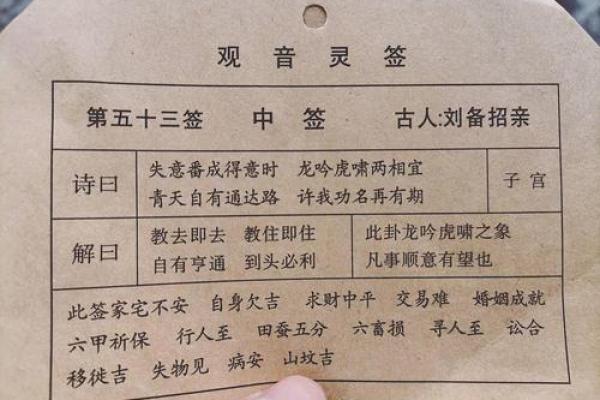 观音灵签
第五十三签 中签 古人:刘备招亲
诗曰
失意番成得意时 龙吟虎啸两相宜
青天自有通达路 许我功名再有期
子宫
解曰
教去即去 教住即住
自有亨通 到头必利
此卦龙吟虎啸之象
凡事顺意有望也
此签家宅不安 自身欠吉 求财中平 交易难 婚姻成就
六甲祈保 行人至 田蚕五分 六畜损 寻人至 讼合
移徙吉 失物见 病安 山坟吉